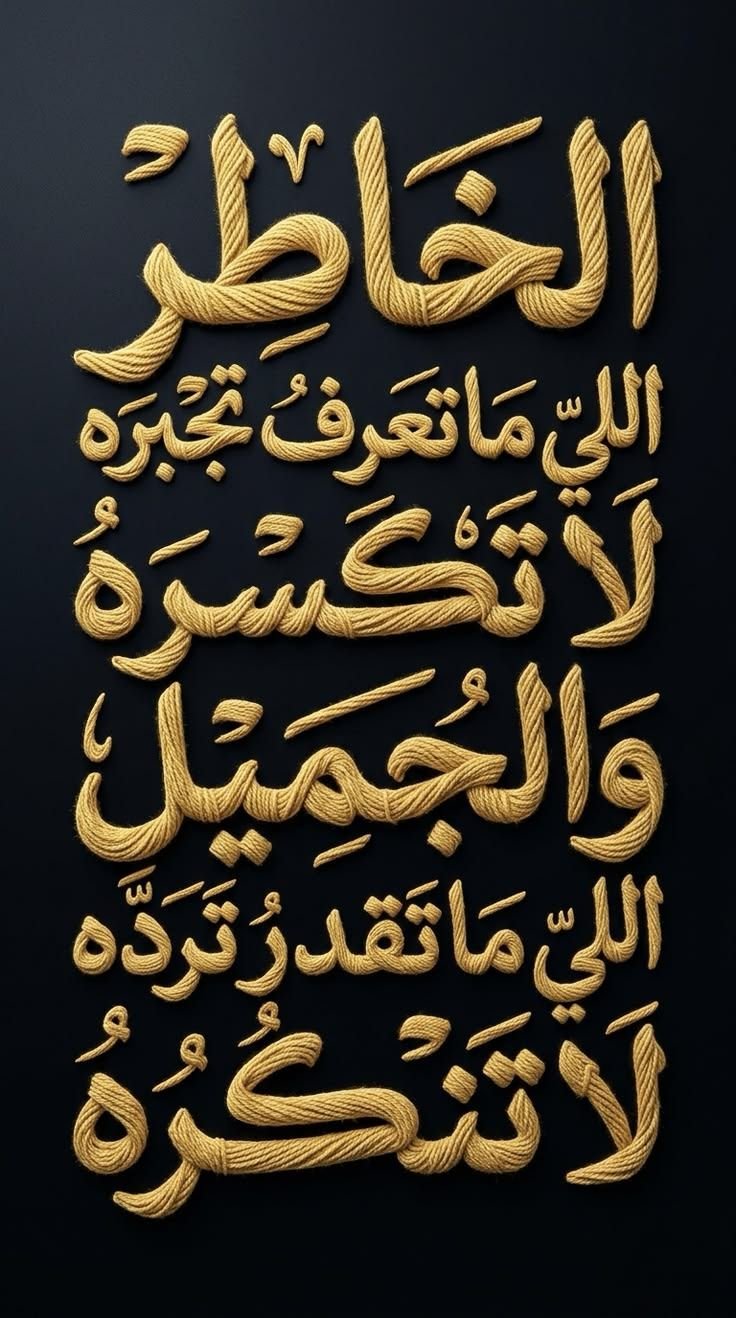 الخَاطِرْ
اللّي مَا تَعَرفُ تجْبرَه
لَا تَكَسْرَهُ
وَالجُمِيْل
اللّي مَا تَقَدرُ تَردَّه
لَا تَنْكُرُهُ